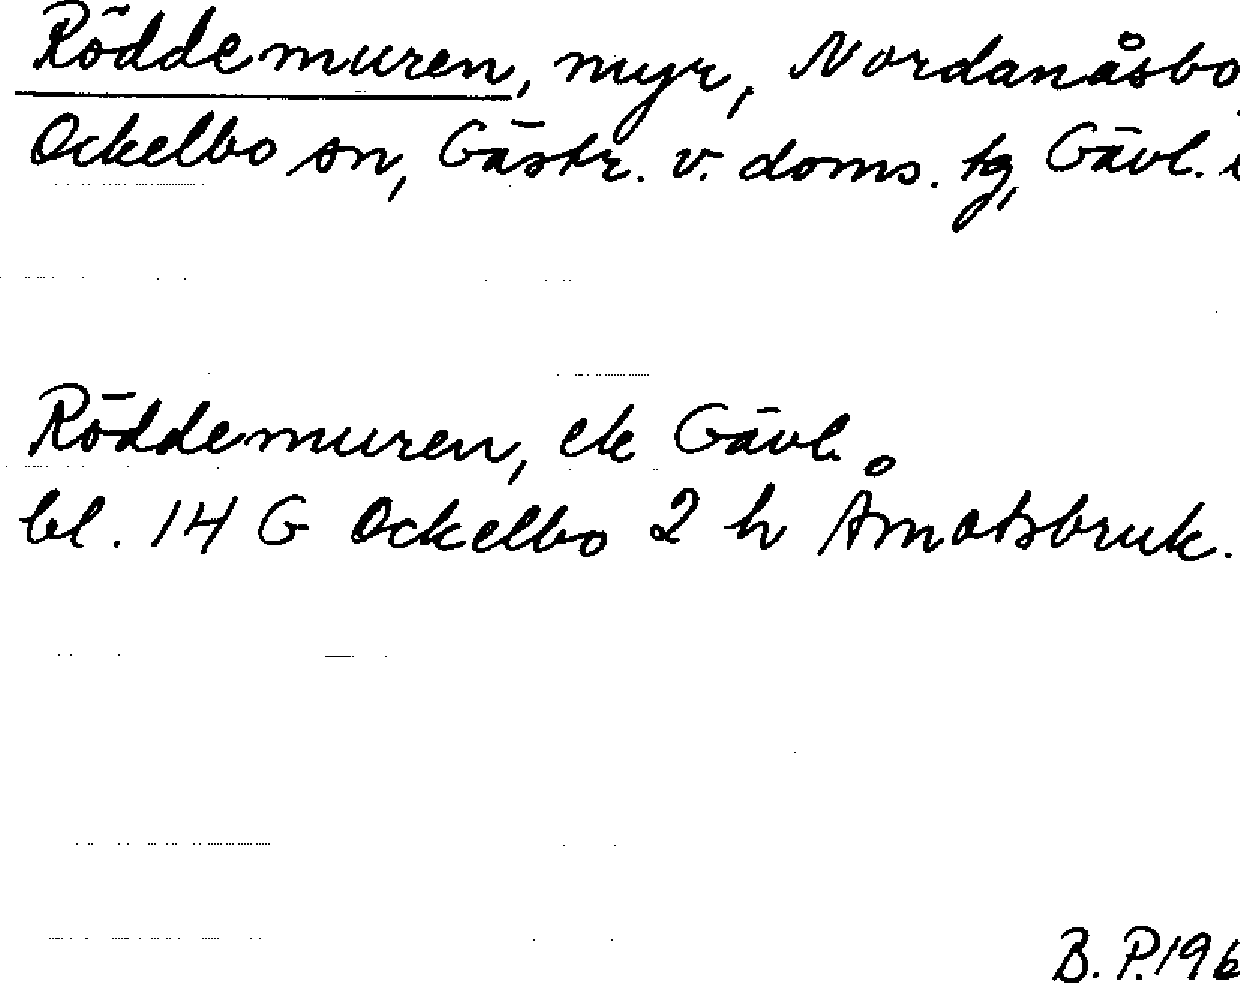 Röddemuren, myr, Nordanåsbo,
Ockelbo sn, Gästr. v. doms. tg, Gävl.
Röddemuren, ek Gävl.
bl. 14 G Ockelbo 2 h Åmotsbruk.
B. P. 196